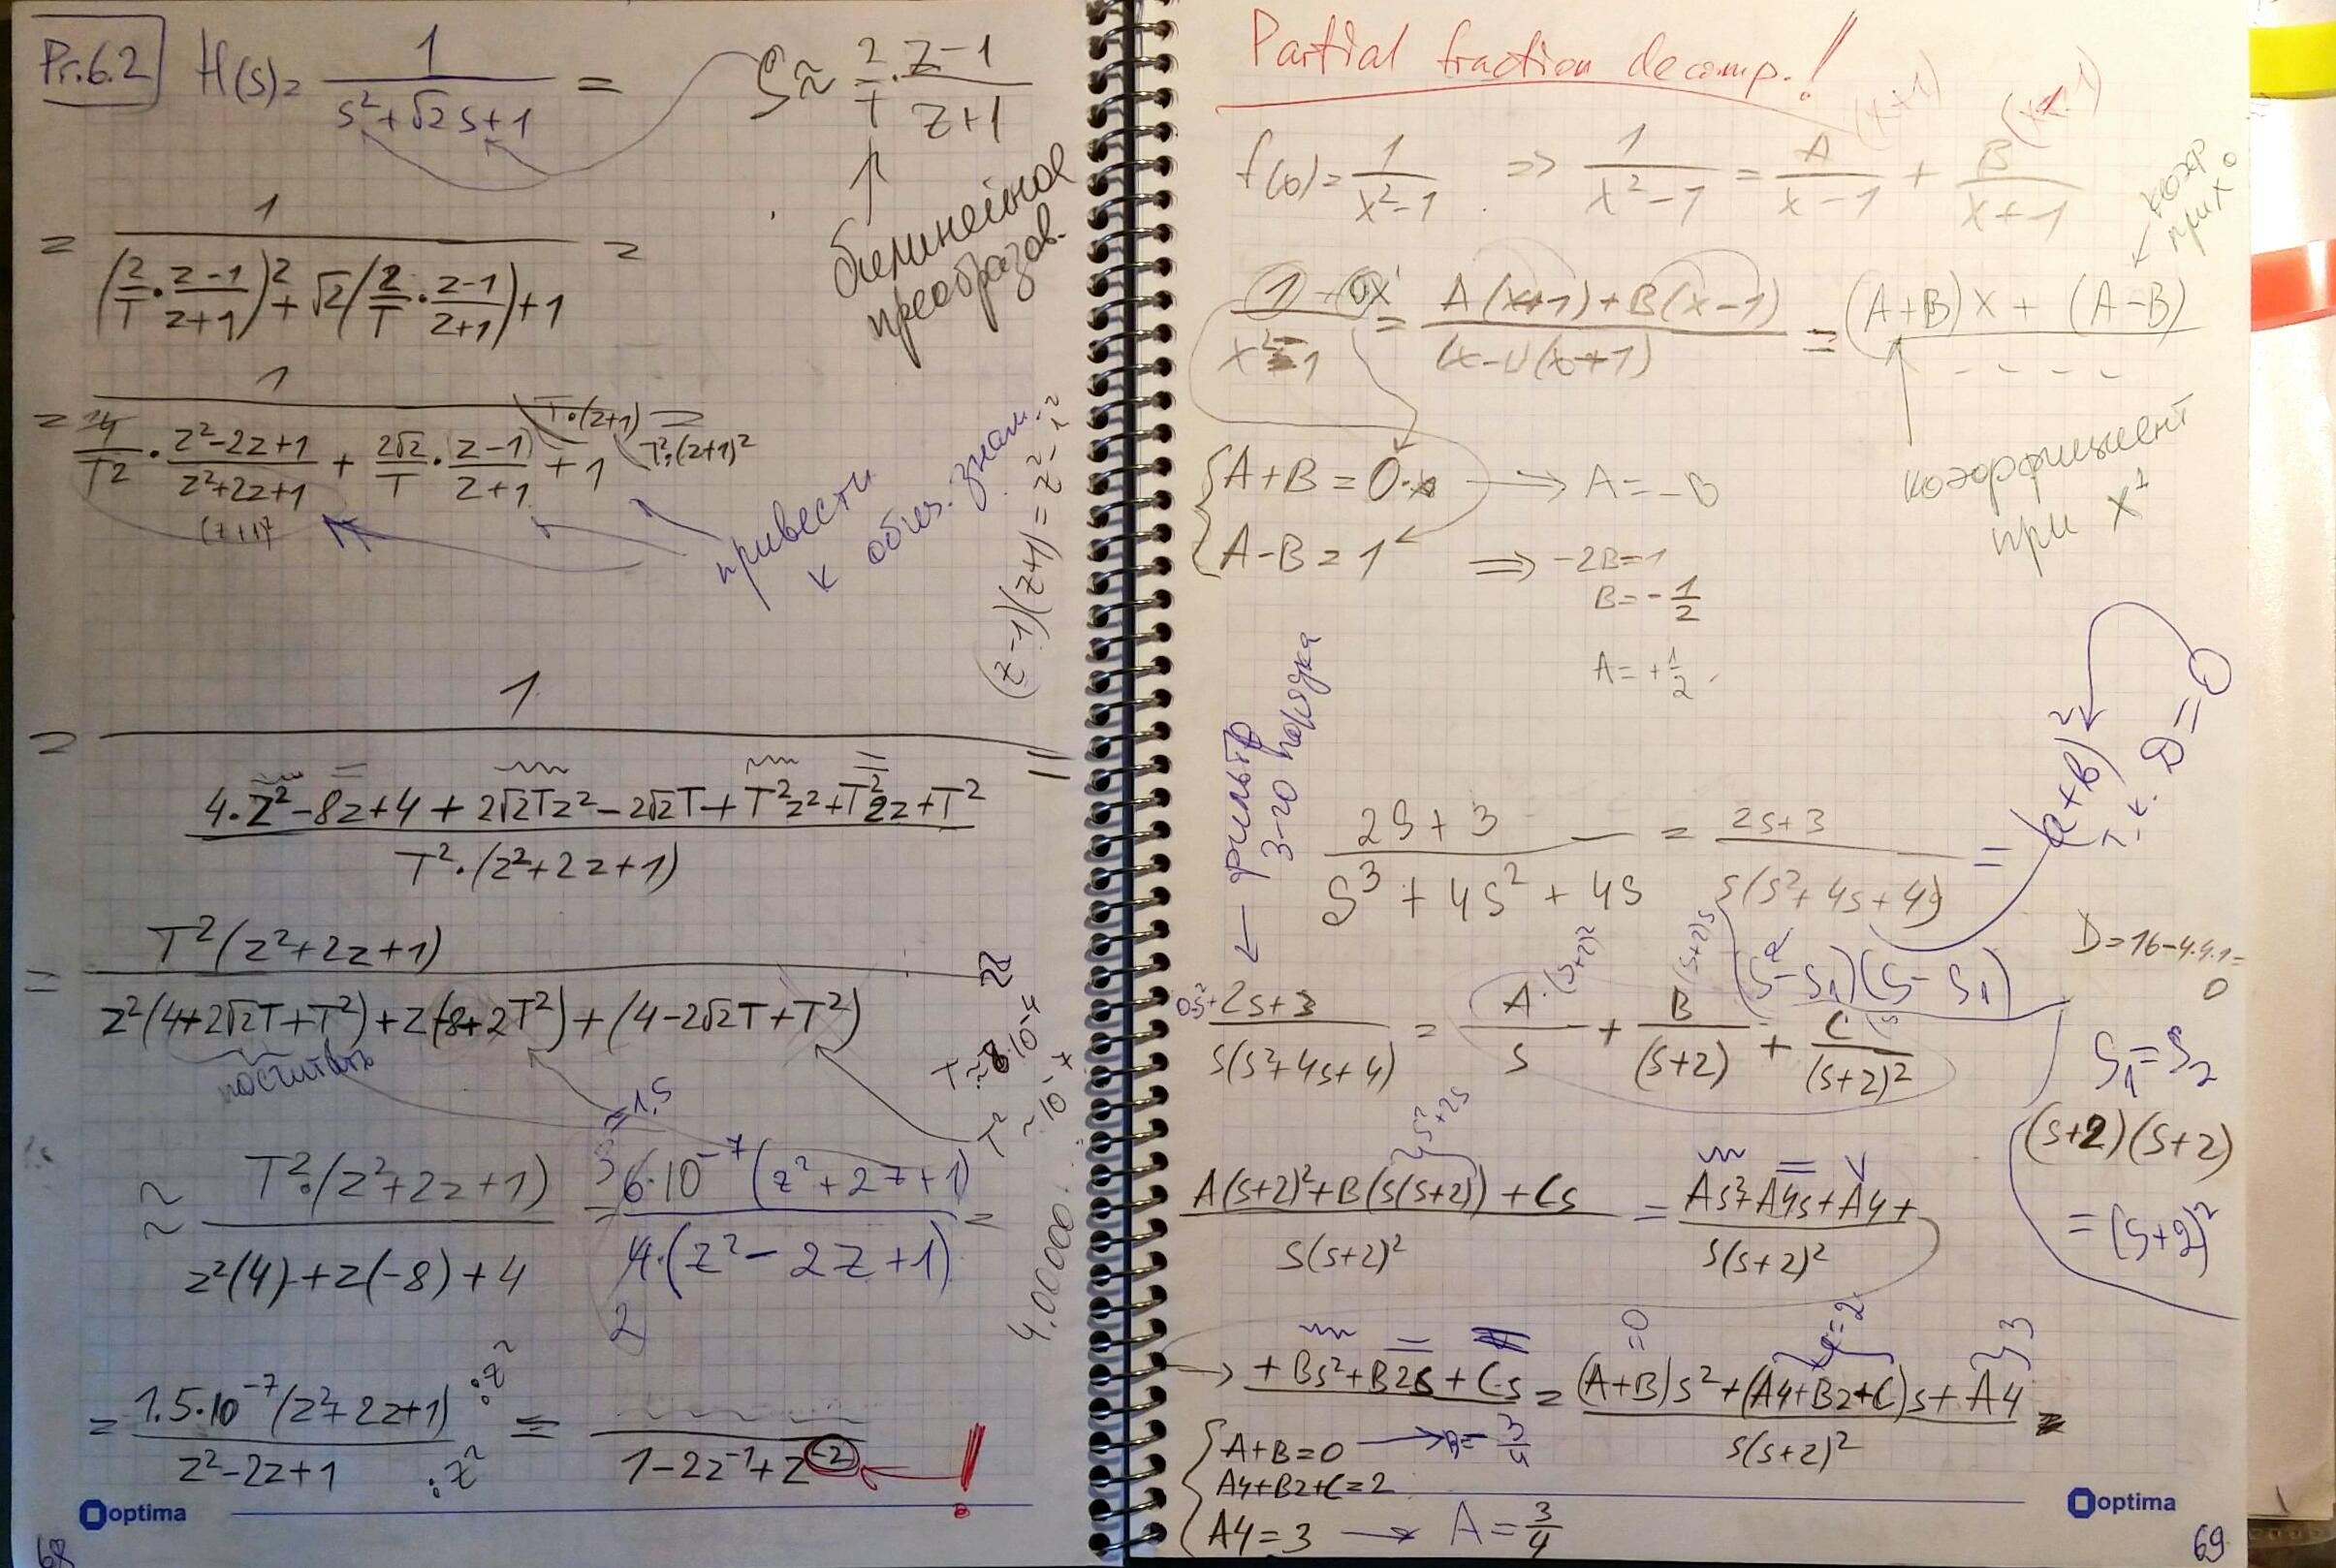 Pr.6.2 H(s)= 1 / (s² + √2 s + 1) = S ≈ 2/T · (z-1)/(z+1)
билинейное
преобразов.
= 1 / ((2/T · (z-1)/(z+1))² + √2 (2/T · (z-1)/(z+1)) + 1) =
= 1 / (4/T2 · (z²-2z+1)/(z²+2z+1) + 2√2/T · (z-1)/(z+1) + 1) =
(z+1)²
T·(z+1)
T²·(z+1)²
привести
к общ. знам.
(z-1)(z+1) = z²-1²
= 1 / ((4·z²-8z+4 + 2√2Tz² - 2√2T + T²z² + T²2z + T²) / (T²·(z²+2z+1))) =
= T²(z²+2z+1) / (z²(4+2√2T+T²)+z(-8+2T²)+(4-2√2T+T²)) ≈
посчитать
T ≈ 8·10⁻⁴
T² ~ 10⁻⁷
≈ T²·(z²+2z+1) / (z²(4)+z(-8)+4) = 6·10⁻⁷(z²+2z+1) / (4·(z²-2z+1)) =
=1,5
3
2
4,00000.
= 1.5·10⁻⁷(z²+2z+1) / (z²-2z+1) :z² :z² = / (1-2z⁻¹+z⁻²) !
optima
68
Partial fraction decomp.!
f(x)= 1/(x²-1) ⇒ 1/(x²-1) = A/(x-1) (x+1) + B/(x+1) (x-1)
коэф
при x⁰
(1+0x¹)/(x²-1) = (A(x+1)+B(x-1))/((x-1)(x+1)) = (A+B)x + (A-B)
коэффициент
при x¹
A+B = 0·x ⇒ A=-B
A-B = 1 ⇒ -2B=1
B=-1/2
A=+1/2
← фильтр
3-го порядка
(2S+3)/(S³+4S²+4S) = (2s+3)/(s(s²+4s+4)) =
(a+b)²
т.к. D=0
(s-s₁)(s-s₁)
D=16-4.4.1=
0
0s²+2s+3 / (s(s²+4s+4)) = A/s ·(s+2)² + B/(s+2) (s+2)s + C/(s+2)² (s
S₁=S₂
(s+2)(s+2)
=(s+2)²
s²+2s
(A(s+2)²+B(s(s+2))+Cs)/(s(s+2)²) = (As²+A4s+A4+)/(s(s+2)²)
=0 =2 3
→ +Bs²+B2s+Cs = ((A+B)s²+(A4+B2+C)s+A4)/(s(s+2)²) =
A+B=0 → B=-3/4
A4+B2+C=2
A4=3 → A=3/4
optima
69